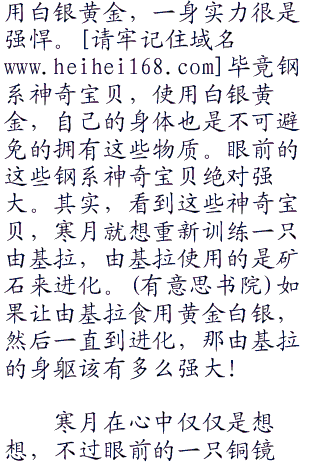 用白银黄金，一身实力很是
强悍。[请牢记住域名
www.heihei168.com]毕竟钢
系神奇宝贝，使用白银黄
金，自己的身体也是不可避
免的拥有这些物质。眼前的
这些钢系神奇宝贝绝对强
大。其实，看到这些神奇宝
贝，寒月就想重新训练一只
由基拉，由基拉使用的是矿
石来进化。(有意思书院)如
果让由基拉食用黄金白银，
然后一直到进化，那由基拉
的身躯该有多么强大!
寒月在心中仅仅是想
想，不过眼前的一只铜镜